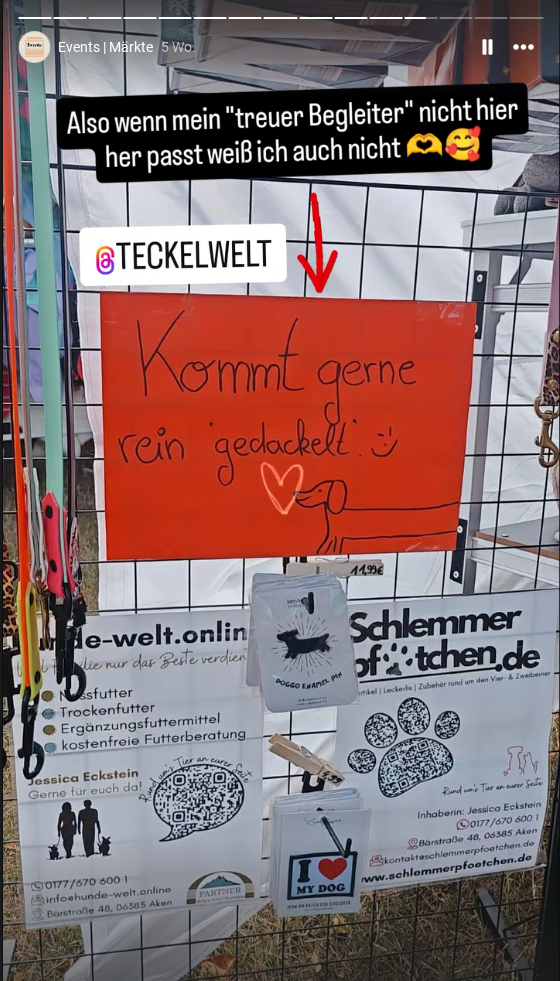 Events | Märkte 5 Wo.
Also wenn mein "treuer Begleiter" nicht hier
her passt weiß ich auch nicht 🫶🥰
@TECKELWELT
Kommt gerne
rein "gedackelt". :-)
11,99€
DOGGO ENAMEL PIN
de-welt.onlin
nur das Beste verdien
Nassfutter
Trockenfutter
Ergänzungsfuttermittel
kostenfreie Futterberatung
Jessica Eckstein
Gerne für euch da!
Rund um's Tier an eurer Seite
0177/670 600 1
info@hunde-welt.online
Bärstraße 48, 06385 Aken
PARTNER
Schlemmer
pf tchen.de
rtikel | Leckerlis | Zubehör rund um den Vier- & Zweibeiner
Rund um's Tier an eurer Seite
Inhaberin: Jessica Eckstein
0177/670 600 1
Bärstraße 48, 06385 Aken
kontakt@schlemmerpfoetchen.de
www.schlemmerpfoetchen.de
I ❤ 
MY DOG